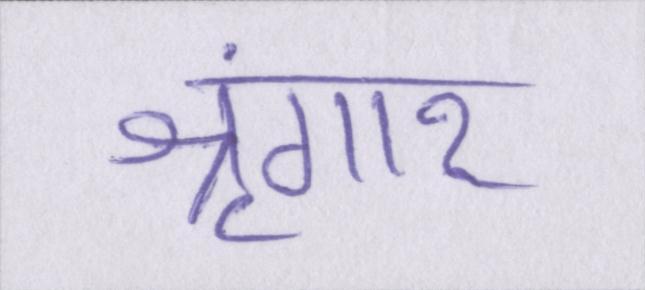 श्रृंगार